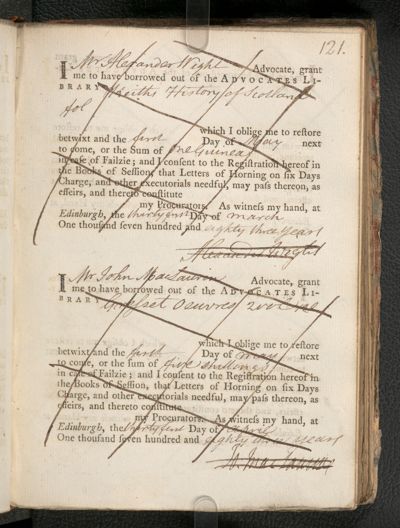 121.
I Mr Alexander Wright Advocate, grant
me to have borrowed out of the ADVOCATES LI-
BRARY History of Scotland
fol
which I oblige me to reſtore
betwixt and the first Day of May next
to come, or the Sum of one Guinea
in caſe of Failzie; and I conſent to the Regiſtration hereof in
the Books of Seſſion, that Letters of Horning on ſix Days
Charge, and other executorials needful, may paſs thereon, as
effeirs, and thereto conſtitute
my Procurators. As witneſs my hand, at
Edinburgh, the thirty first Day of march
One thouſand ſeven hundred and eighty three years
Alexander Wright
I Mr John MacLaurin Advocate, grant
me to have borrowed out of the ADVOCATES LI-
BRARY Oeuvres
which I oblige me to reſtore
betwixt and the Day of may next
to come, or the ſum of five shillings
in caſe of Failzie; and I conſent to the Regiſtration hereof in
the Books of Seſſion, that Letters of Horning on ſix Days
Charge, and other executorials needful, may paſs thereon, as
effeirs, and thereto conſtitute
my Procurators. As witneſs my hand, at
Edinburgh, the Day of April
One thouſand ſeven hundred and eighty three years